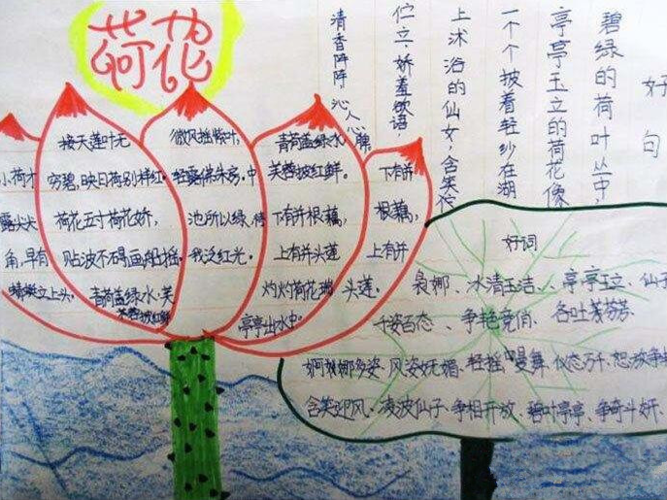 荷花
小荷才
露尖尖
角,早有
蜻蜓立上头。
接天莲叶无
穷碧,映日荷别样红。
荷花五寸荷花娇,
贴波不碍画船摇,
青荷盖绿水,芙
蓉披红鲜
微风摇紫叶,
轻露拂朱房,中
池所以绿,待
我泛红光。
青荷盖绿水
芙蓉披红鲜。
下有并根藕,
上有并头莲
灼灼荷花瑞,
亭亭出水中。
下有并
根藕,
上有并
头莲。
好句
碧绿的荷叶丛中,
亭亭玉立的荷花像
一个个披着轻纱在湖
上沐浴的仙女,含笑伫
伫立,娇羞欲语
清香阵阵,沁人心脾
好词
袅娜、冰清玉洁、亭亭玉立、仙
千姿百态、争艳竞俏、各吐芬芳
婀娜多姿、风姿妩媚、轻摇曼舞、仪态万千、怒放争
含笑迎风、凌波仙子、争相开放、碧叶亭亭、争奇斗妍